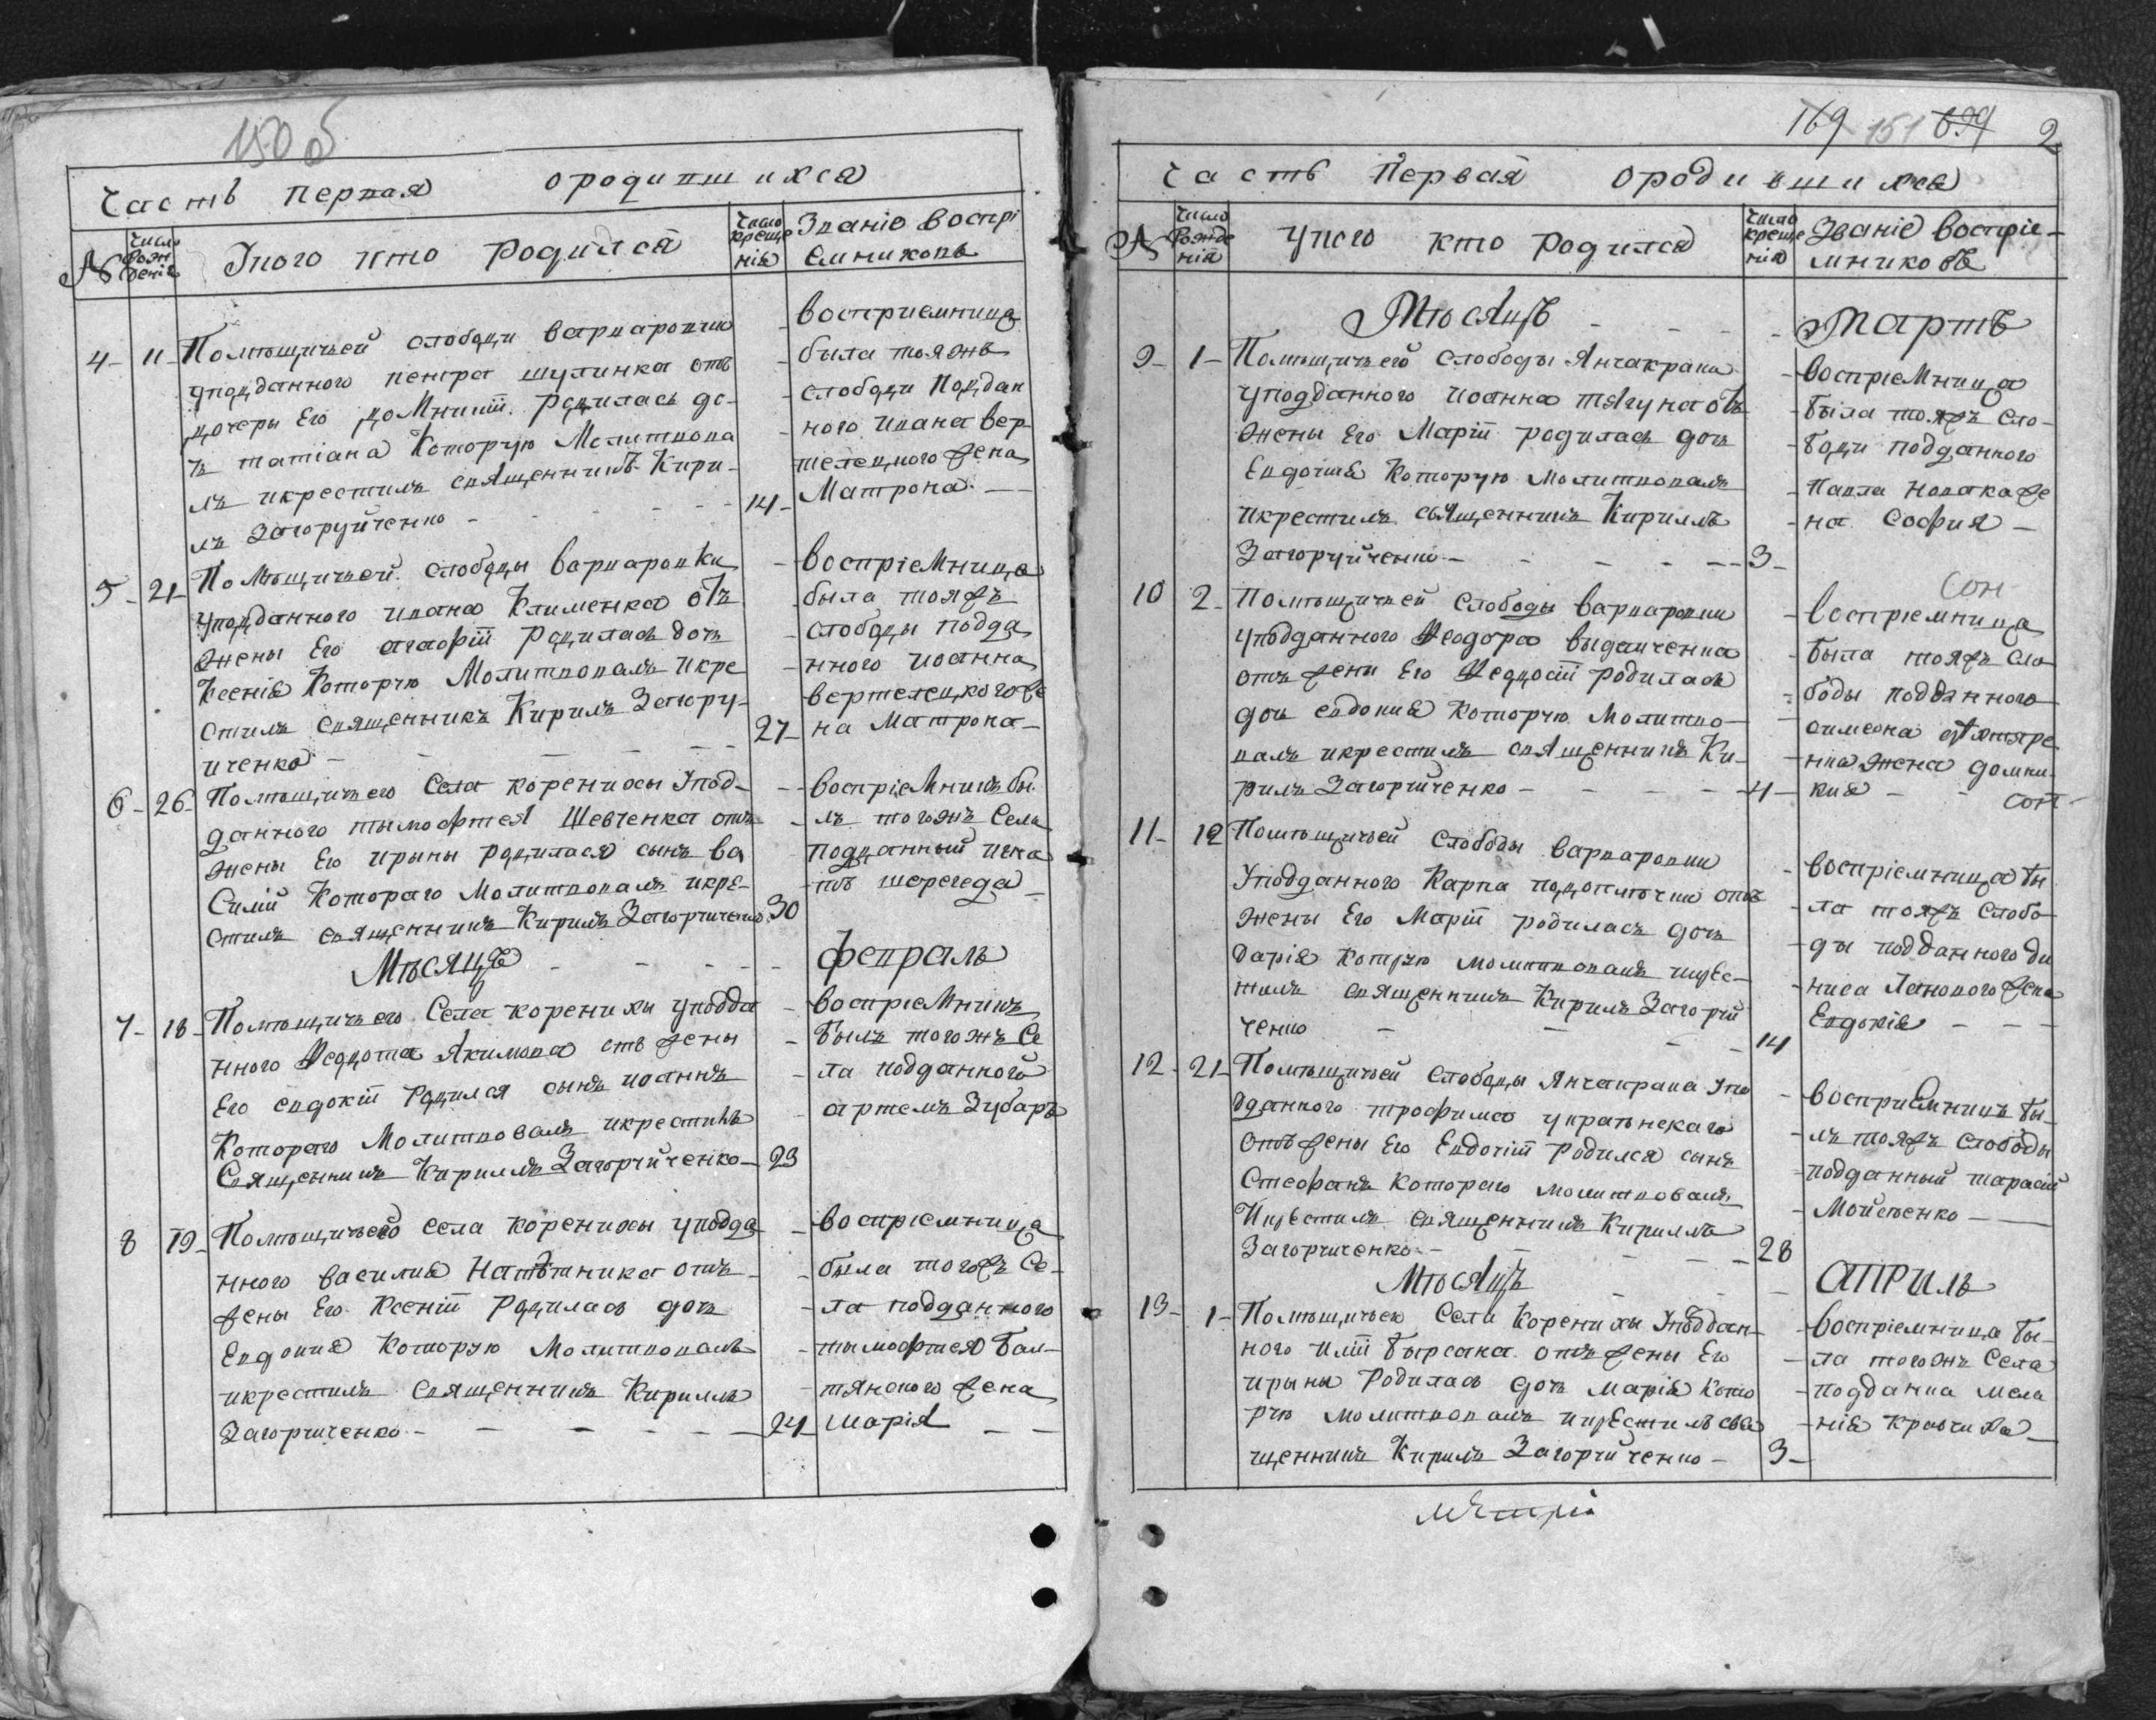 150 об
Часть первая о родившихся
№
число рождения
У кого кто родился
число крещения
Звание воспри
емниковъ
4 - 11 - Помѣщичьей слободи варваровки
уподданного петра шулика отъ
дочеры Его доМникіи родилась до-
ъ татіана Которую Молитвова
лъ икрестилъ свЯщенникъ Кири-
лъ Загоруйченко - - - 14 -
восприемница
была тояжъ
слободи поддан
ного ивана вер
телецкого жена
Матрона. -
5 - 21 - ПоМѣщичьей слободы варваровки
уподданного ивана Клименка отъ
жены Его агафіи родилась доч
Ксеніа Которую Молитвовалъ икре
стилъ священникъ Кирилъ Загоруй-
ченко - - - 27 -
- воспріеМница
была тояжъ
- слободы подда
- нного иоанна
вертелецкого же
на Матрона -
6 - 26 - Помѣщичьего Села коренихы Упод-
данного тымофтея Шевченка отъ
жены Его ирыны родилася сынъ ва
Силій Котораго Молитвовалъ икре-
стилъ священникъ Кирилъ Загоруйченко 30
- воспріеМникъ бы
- лъ тогожъ Села
подданный игна
- тъ шерегеда -
МѣсЯцъ - - - - февраль
7 - 18 - Помѣщичьего Села корениxи уподда
нного Федота Якимова отъ жены
Его евдокіи родился сынъ иоаннъ
Которого Молитвовалъ икрестилъ
Священникъ Кириллъ Загоруйченко - 23
- воспріеМникъ
- былъ тогожъ Се
- ла подданного
- артемъ Зубаръ
8 19 - Помѣщичьего села корениxы уподда
нного василиа отъ
жены Его Ксеніи родилась доч
Евдокиа Которую Молитвовалъ
икрестилъ священникъ Кириллъ
Загоруйченко - - - - 24
- воспріемница
- была тогожъ Се-
- ла подданного
- тымофтея Бал-
- тянского жена
маріЯ - -
169 151 699 2
Часть Первая о родившихся
№
число рожде ния
У кого кто родился
число креще ния
Званіе воспріе-
мниковъ
МѣсЯцъ - - - - Мартъ
9 - 1 - Помѣщичьего слободы Янчакрана
уподданного иоанна тягуна отъ
жены Его Маріи родилась доч
Евдокиа Которую Молитвовалъ
икрестилъ свЯщенникъ Кириллъ
Загоруйченко - - - - 3 -
- воспріеМница
- была тояжъ Сло-
- боди подданного
- Павла новака же
- на София -
10 2 - Помѣщичьей слободы варваровки
уподданного Феодора
отъ жени Его Федосіи родилась
доч евдокиа Которую Молитво-
валъ икрестилъ свЯщенникъ Ки-
рилъ Загоруйченко - - - 4 -
Сон
- воспріемница
- была тояжъ Сло
- боды подданного
- симеона
- нка жена домни-
кия - - сон
11 - 12 Помѣщичьей Слободы варваровки
Уподданного Карпа отъ
жены Его Маріи родилась доч
Дарія Которую молитвовалъ икрес-
тилъ священникъ Кирилъ Загоруй
ченко - - - 14
- воспріемница бы
- ла тояжъ Слобо
- ды подданного ди
- ниса жена
Евдокія - - -
12 - 21 - Помѣщичьей Слободы Янчакрана Упо
дданного трофима украѣнскаго
отъ жены Его Евдокіи Родился сынъ
Стефанъ Которого молитвовалъ
Икрестилъ священникъ Кириллъ
Загоруйченко. - - - - 28
- восприЕмникъ бы-
- лъ тояжъ Слободы
- подданный тарасій
- Мойсѣенко -
МѣсЯцъ - - - АПРИль
13 - 1 - Помѣщичьего Села Корениxы Уподдан-
ного Иліи Бырсака отъ жены Его
ирыны Родилась доч марія Кото
рую молитвовалъ икрестилъ свя
щенникъ Кирилъ Загоруйченко - 3 -
- воспріемница бы-
- ла тогожъ Села
- подданна мела
- нія кравчиха -